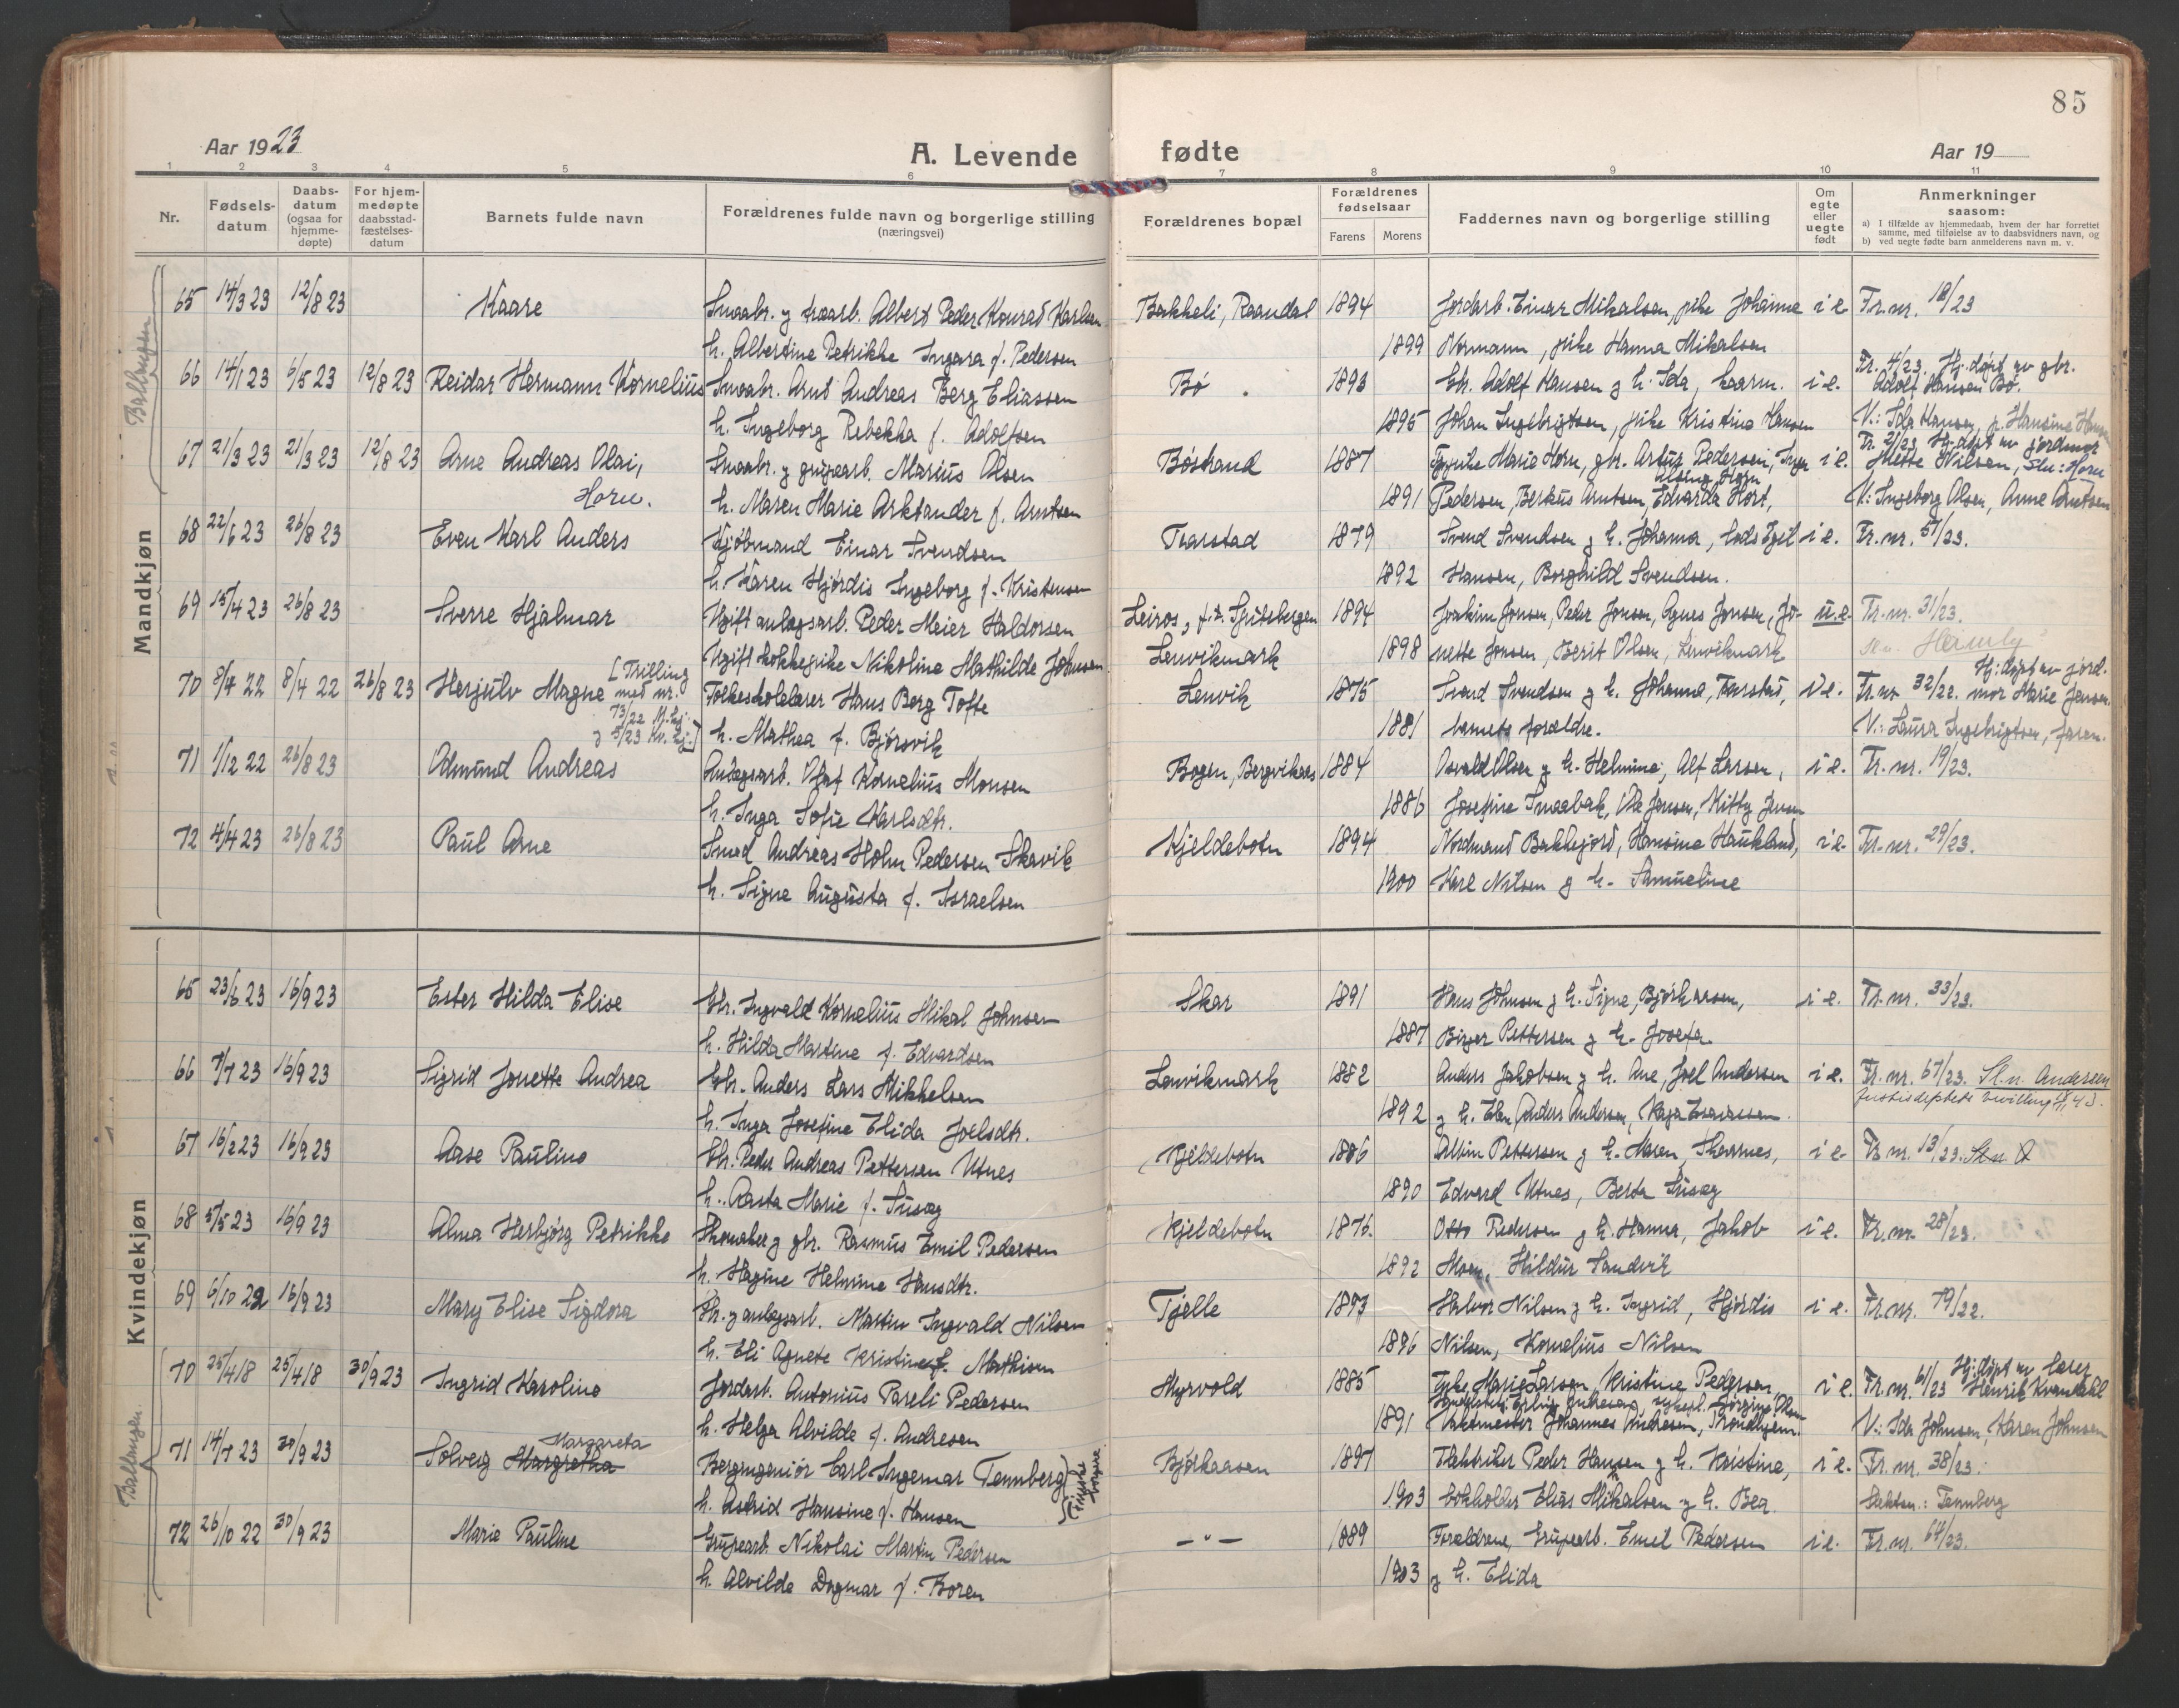 85
Aar 1923
A. Levende fødte
Aar 19
1 2 3 4 5 6 7 8 9 10 11
Nr.
Fødselsdatum
Daabsdatum (ogsaa for hjemmedøpte)
For hjemmedøpte daabsstadfæstelsesdatum
Barnets fulde navn
Forældrenes fulde navn og borgerlige stilling (næringsvei)
Forældrenes bopæl
Forældrenes fødselsaar
Farens Morens
Faddernes navn og borgerlige stilling
Om egte eller uegte født
Anmerkninger
saasom:
a) I tilfælde av hjemmedaab, hvem der har forrettet samme, med tilføielse av to daabsvidners navn, og
b) ved uegte fødte barn anmelderens navn m. v.
Mandkjøn
Ballangen
65 14/3 23 12/8 23 Kaare Smaabr. g Albert Peder Konrad Karlsen Bakkeli, Raandal 1894 Jordarb. Einar Mikalsen, pike Johanne i e. Fr. nr. 18/23
h. Albertine Petrikke Ingara f. Pedersen 1899 Normann, pike Hanna Mikalsen
66 14/1 23 6/5 23 12/8 23 Reidar Hermann Kornelius Smaabr. Arnt Andreas Berg Eliassen Bø 1893 Gbr. Adolf Hansen g h. Ida, i e. Fr. 4/23. Hj: døpt av gbr. Adolf Hansen Bø.
h. Ingeborg Rebekka f. Adolfsen 1895 Johan Ingebrigtsen, pike Kristine Hansen V.: Ida Hansen, p. Hansine
67 21/3 23 21/3 23 12/8 23 Arne Andreas Olai, Smaabr. g grubearb. Marius Olsen Bøstrand 1887 pike Marie Horn, gbr. Artur Pedersen, Inga i e. Fr. 2/23 Hj: døpt av jordmor Mette Nilsen, Sln: Horn
Horn. h. Maren Marie Arktander f. Arntsen 1891 Pedersen, Berkus Arntsen, Edvarda Hort, V.: Ingeborg Olsen, Anne Arntsen
68 22/6 23 26/8 23 Even Karl Anders Kjøbmand Einar Svendsen Taarstad 1879 Svend Svendsen g h. Johanna, lods Egil i e. Fr. nr. 51/23.
h. Karen Hjørdis Ingeborg f. Kristensen 1892 Hansen, Borghild Svendsen.
69 15/4 23 26/8 23 Sverre Hjalmar Ugift anlægsarb. Peder Meier Haldorsen Leiros, f.t. Spitsbergen 1894 Joakim Jonsen, Peder Jonsen, Agnes Jonsen, Jo- u.e. Fr. nr. 31/23.
Ugift kokkepike Nikoline Mathilde Johnsen Lenvikmark 1898 nette Jonsen, Berit Olsen, Lenvikmark Heimly
70 8/4 22 8/4 22 26/8 23 Herjulv Magne [Trilling med nr. 73/22 M.kj. g 5/23 Kv. kj.] Folkeskolelærer Hans Berg Tofte Lenvik 1875 Svend Svendsen g h. Johanna, Taarstad, i e. Fr. nr. 32/22. Hj: døpt av jordmor Marie Jensen.
h. Mathea f. Bjørsvik 1881 barnets forældre. V.: Laura Ingebrigtsen, faren.
71 1/12 22 26/8 23 Odmund Andreas Anlægsarb. Olaf Kornelius Monsen Bogen, Bergvikens 1884 Osvald Olsen g h. Helmine, Alf Larsen, i e. Fr. nr. 19/23.
h. Inga Sofie Karlsdtr. 1886 Josefine Smaabak, Ole Jensen, Kitty Jensen
72 4/4 23 26/8 23 Paul Arne Smed Andreas Holm Pedersen Skavik Kjeldebotn 1894 Nordmand Bakkejord, Hansine Haukland, i e. Fr. nr. 29/23.
h. Signe Augusta f. Israelsen 1900 Karl Nilsen g h. Samueline
Kvindekjøn
65 23/6 23 16/9 23 Ester Hilda Elise Gbr. Ingvald Kornelius Mikal Johnsen Skar 1891 Hans Johnsen g h. Signe, Bjørkaasen, i e. Fr. nr. 33/23.
h. Hilda Martine f. Edvardsen 1887 Birger Pettersen g h. Josefa.
66 7/7 23 16/9 23 Sigrid Jonette Andrea Gbr. Anders Lars Mikkelsen Lenvikmark 1882 Anders Jakobsen g h. Ane, Joel Andersen i e. Fr. nr. 67/23. Sl.n. Andersen
h. Inga Josefine Elida Joelsdtr. 1892 g h. Elen, Anders Andersen, Kaja Esaiassen. Justisdeptets bevilling 43.
67 16/2 23 16/9 23 Aase Pauline Gbr. Peder Andreas Pettersen Utnes Kjeldebotn 1886 Albin Pettersen g h. Maren, Skarnes, i e. Fr. nr. 13/23. Sl.n
h. Aasta Marie f. Susæg 1890 Edvard Utnes, Berta Susæg
68 5/5 23 16/9 23 Alma Herbjørg Petrikke Skomaker g gbr. Rasmus Emil Pedersen Kjeldebotn 1876. Otto Pedersen g h. Hanna, Jakob i e. Fr. nr. 28/23.
h. Hagine Helmine Hansdtr. 1892 Moen, Hildur Sandvik
69 6/10 22 16/9 23 Mary Elise Sigdora Gbr. g anlægsarb. Martin Ingvald Nilsen Tjelle 1893 Halvor Nilsen g h. Ingrid, Hjørdis i e. Fr. nr. 79/22.
h. Eli Agnete Kristine f. Mathisen 1896 Nilsen, Kornelius Nilsen
Ballangen.
70 25/4 18 25/4 18 30/9 23 Ingrid Karoline Jordarb. Antonius Pareli Pedersen Myrvold 1885 Marie Larsen, Kristine Pedersen, i e. Fr. nr. 61/23 Hj: døpt av lærer Henrik Kvandahl
h. Helga Alvilde f. Andresen 1891 Vaktmester Johannes Andresen, Trondhjem. V.: Ida Johnsen, Karen Johnsen
71 14/7 23 30/9 23 Solveig Margretha Margareta Bergingeniør Carl Ingemar Tennberg Bjørkaasen 1897 Elektriker Peder Hansen g h. Kristine, i e. Fr. nr. 38/23.
h. Astrid Hansine f. Hansen (Finske borgere) 1903 bokholder Elias Mikalsen g h. Bea. Slektsn.: Tennberg
72 26/10 22 30/9 23 Marie Pauline Grubearb. Nikolai Martin Pedersen — " — 1889 Forældrene, Grubearb. Emil Pedersen i e. Fr. nr. 64/23.
h. Alvilde Dagmar f. Boren 1903 g h. Elida